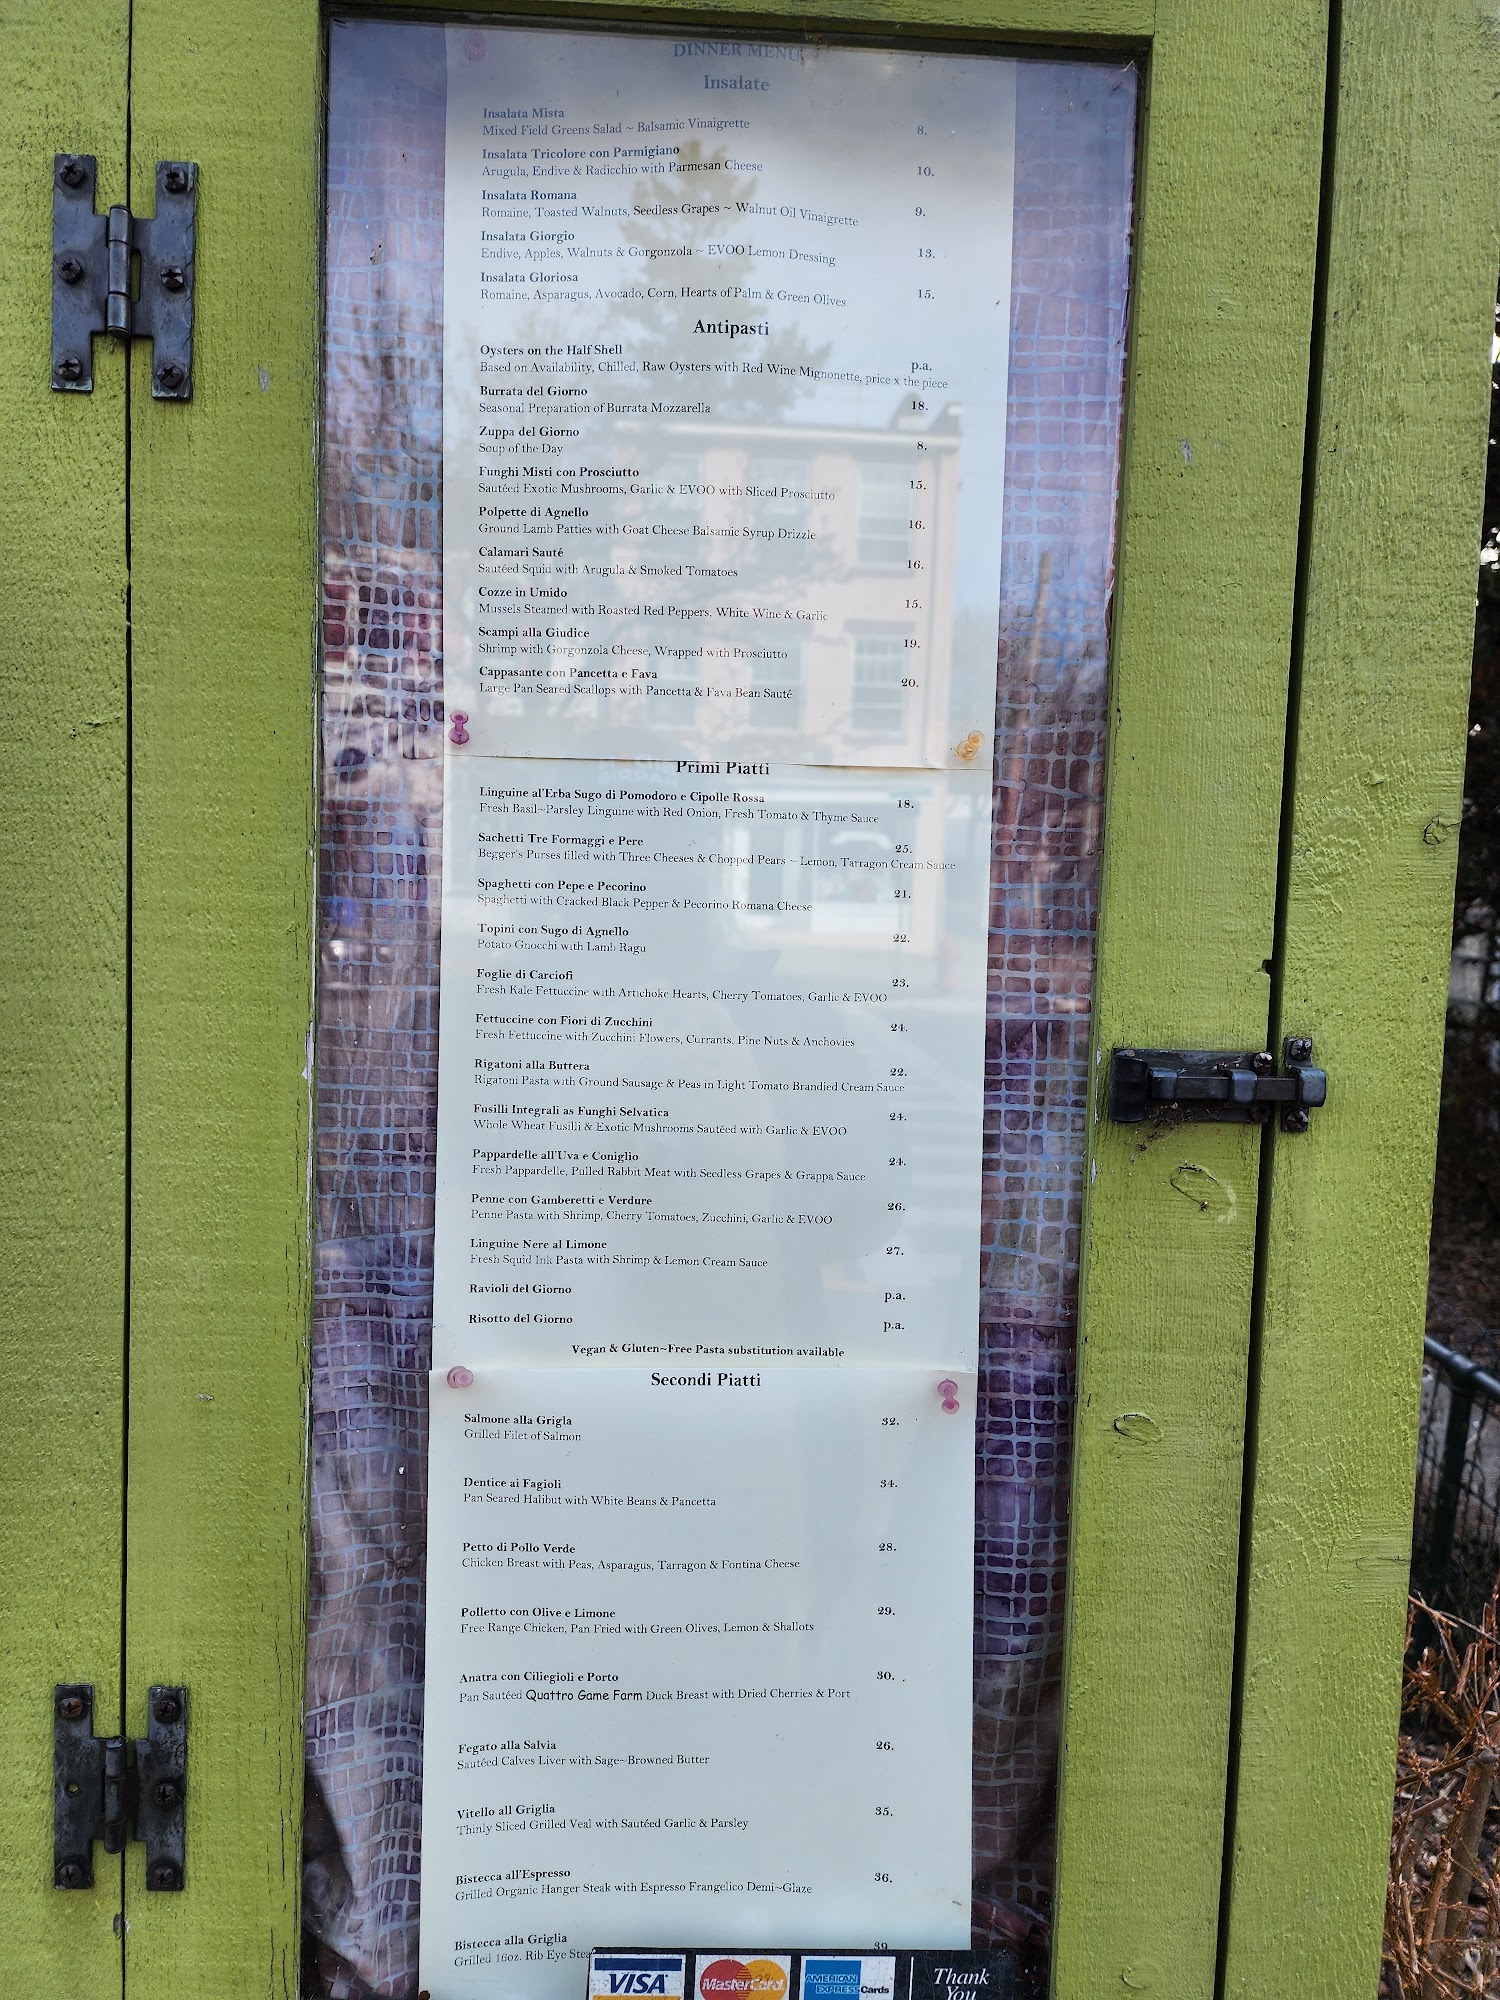 DINNER MENU
Insalate
Insalata Mista
Mixed Field Greens Salad ~ Balsamic Vinaigrette 8.
Insalata Tricolore con Parmigiano
Arugula, Endive & Radicchio with Parmesan Cheese 10.
Insalata Romana
Romaine, Toasted Walnuts, Seedless Grapes ~ Walnut Oil Vinaigrette 9.
Insalata Giorgio
Endive, Apples, Walnuts & Gorgonzola ~ EVOO Lemon Dressing 13.
Insalata Gloriosa
Romaine, Asparagus, Avocado, Corn, Hearts of Palm & Green Olives 15.
Antipasti
Oysters on the Half Shell p.a.
Based on Availability, Chilled, Raw Oysters with Red Wine Mignonette, price x the piece
Burrata del Giorno
Seasonal Preparation of Burrata Mozzarella 18.
Zuppa del Giorno
Soup of the Day 8.
Funghi Misti con Prosciutto
Sautéed Exotic Mushrooms, Garlic & EVOO with Sliced Prosciutto 15.
Polpette di Agnello
Ground Lamb Patties with Goat Cheese Balsamic Syrup Drizzle 16.
Calamari Sauté
Sautéed Squid with Arugula & Smoked Tomatoes 16.
Cozze in Umido
Mussels Steamed with Roasted Red Peppers, White Wine & Garlic 15.
Scampi alla Giudice
Shrimp with Gorgonzola Cheese, Wrapped with Prosciutto 19.
Cappasante con Pancetta e Fava
Large Pan Seared Scallops with Pancetta & Fava Bean Sauté 20.
Primi Piatti
Linguine al'Erba Sugo di Pomodoro e Cipolle Rossa 18.
Fresh Basil~Parsley Linguine with Red Onion, Fresh Tomato & Thyme Sauce
Sachetti Tre Formaggi e Pere 25.
Begger's Purses filled with Three Cheeses & Chopped Pears ~ Lemon, Tarragon Cream Sauce
Spaghetti con Pepe e Pecorino 21.
Spaghetti with Cracked Black Pepper & Pecorino Romana Cheese
Topini con Sugo di Agnello 22.
Potato Gnocchi with Lamb Ragu
Foglie di Carciofi 23.
Fresh Kale Fettuccine with Artichoke Hearts, Cherry Tomatoes, Garlic & EVOO
Fettuccine con Fiori di Zucchini 24.
Fresh Fettuccine with Zucchini Flowers, Currants, Pine Nuts & Anchovies
Rigatoni alla Buttera 22.
Rigatoni Pasta with Ground Sausage & Peas in Light Tomato Brandied Cream Sauce
Fusilli Integrali as Funghi Selvatica 24.
Whole Wheat Fusilli & Exotic Mushrooms Sautéed with Garlic & EVOO
Pappardelle all'Uva e Coniglio 24.
Fresh Pappardelle, Pulled Rabbit Meat with Seedless Grapes & Grappa Sauce
Penne con Gamberetti e Verdure 26.
Penne Pasta with Shrimp, Cherry Tomatoes, Zucchini, Garlic & EVOO
Linguine Nere al Limone 27.
Fresh Squid Ink Pasta with Shrimp & Lemon Cream Sauce
Ravioli del Giorno p.a.
Risotto del Giorno p.a.
Vegan & Gluten~Free Pasta substitution available
Secondi Piatti
Salmone alla Grigla 32.
Grilled Filet of Salmon
Dentice ai Fagioli 34.
Pan Seared Halibut with White Beans & Pancetta
Petto di Pollo Verde 28.
Chicken Breast with Peas, Asparagus, Tarragon & Fontina Cheese
Polletto con Olive e Limone 29.
Free Range Chicken, Pan Fried with Green Olives, Lemon & Shallots
Anatra con Ciliegioli e Porto 30.
Pan Sautéed Quattro Game Farm Duck Breast with Dried Cherries & Port
Fegato alla Salvia 26.
Sautéed Calves Liver with Sage~Browned Butter
Vitello all Griglia 35.
Thinly Sliced Grilled Veal with Sautéed Garlic & Parsley
Bistecca all'Espresso 36.
Grilled Organic Hanger Steak with Espresso Frangelico Demi~Glaze
Bistecca alla Griglia 39
Grilled 16oz. Rib Eye Stea
VISA MasterCard AMERICAN EXPRESS Cards Thank You